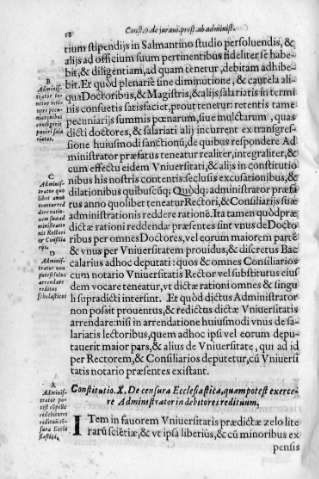 18 Constit. de iurani. prest. ab administ.
rium stipendijs in Salmantino studio persoluendis, &
alijs ad officium suum pertinentibus fideliter se habe-
bit, & diligentiam, ad quam tenetur, debitam adhibe-
bit. Et quòd plenariè sine diminutione, & cautela ali-
qua Doctoribus, & Magistris, & alijs salariatis in termi-
nis consuetis satisfaciet, prout tenetur: retentis tame
pecuniarijs summis pœnarum, siue mulctarum, quas
dicti doctores, & salariati alij incurrent ex transgres-
sione huiusmodi sanctionũ, de quibus respondere Ad
ministrator præfatus teneatur realiter, integraliter, &
cum effectu eidem Vniuersitati, & alijs in constitutio
nibus his nostris contentis: seclusis excusationibus, &
dilationibus quibuscũq; Quòdq; administrator præfa
tus anno quolibet teneatur Rectori, & Consiliarijs suæ
administrationis reddere rationẽ. Ita tamen quòd præ
dictæ rationi reddendæ præsentes sint vnus de Docto
ribus per omnes Doctores, vel eorum maiorem partẽ
& vnus per Vniuersitatem prouidus, & discretus Bac
calarius adhoc deputati: quos & omnes Consiliarios
cum notario Vniuersitatis Rector vel substitutus eius
dem vocare teneatur, vt dictæ rationi omnes & singu
li supradicti intersint. Et quòd dictus Administrator
non possit prouentus, & redictus dictæ Vniuersitatis
arrendare: nisi in arrendatione huiusmodi vnus de sa-
lariatis lectoribus, quem adhoc ipsi vel eorum depu-
tauerit maior pars, & alius de Vniuersitate, qui ad id
per Rectorem, & Consiliarios deputetur, cũ Vniuersi
tatis notario præsentes existant.
B
Administrator
C
Adminis-
trator quo
libet anno
D
Adminis-
trator non
A
Adminis-
trator po-
Constitutio. X. De censura Ecclesiastica, quam potest exerce-
re Administrator in debitores redituum.
ITem in fauorem Vniuersitatis prædictæ zelo litte
rarũ sciẽtiæ, & vt ipsa liberius, & cũ minoribus ex
pensis